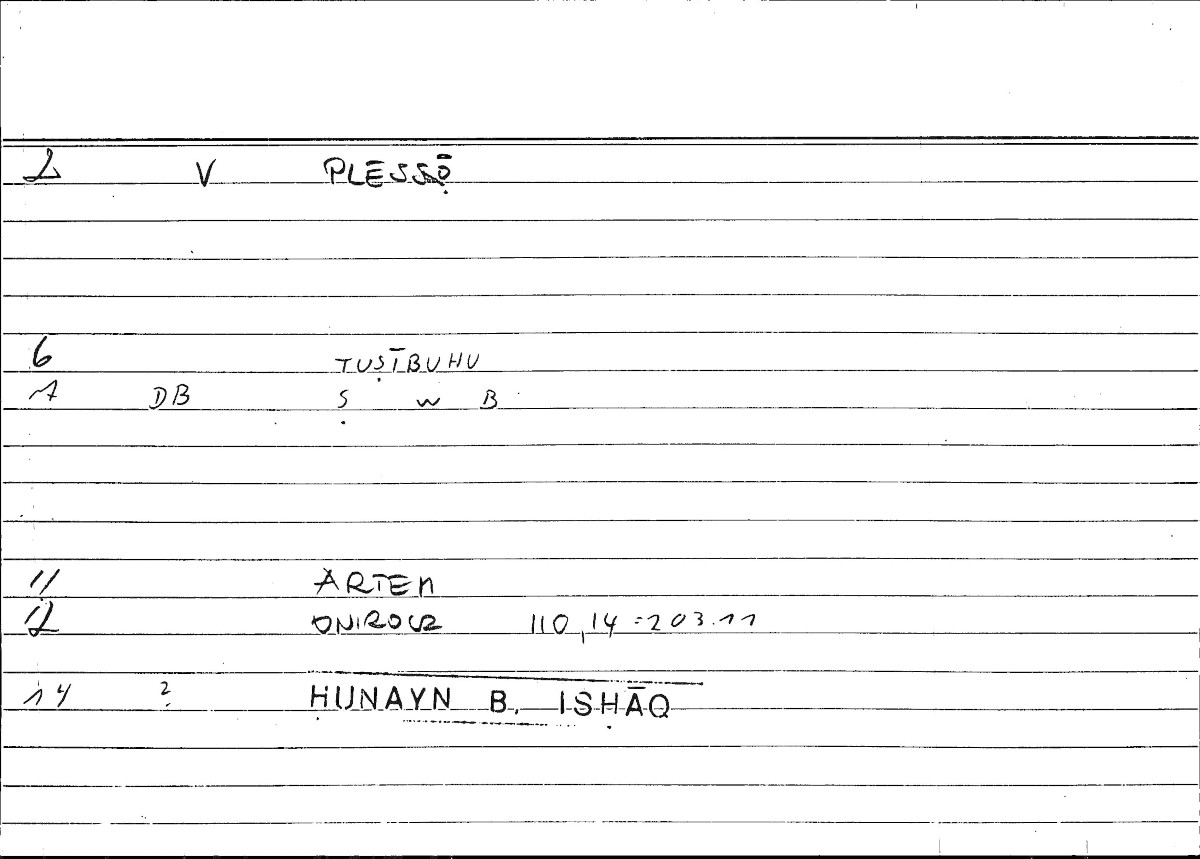 2 V PLĒSSŌ
6 TUṢĪBUHU
7 DB Ṣ W B
11 ARTEM
12 ONIROCR 110,14 = 203.11
14 ? ḤUNAYN B. ISḤĀQ